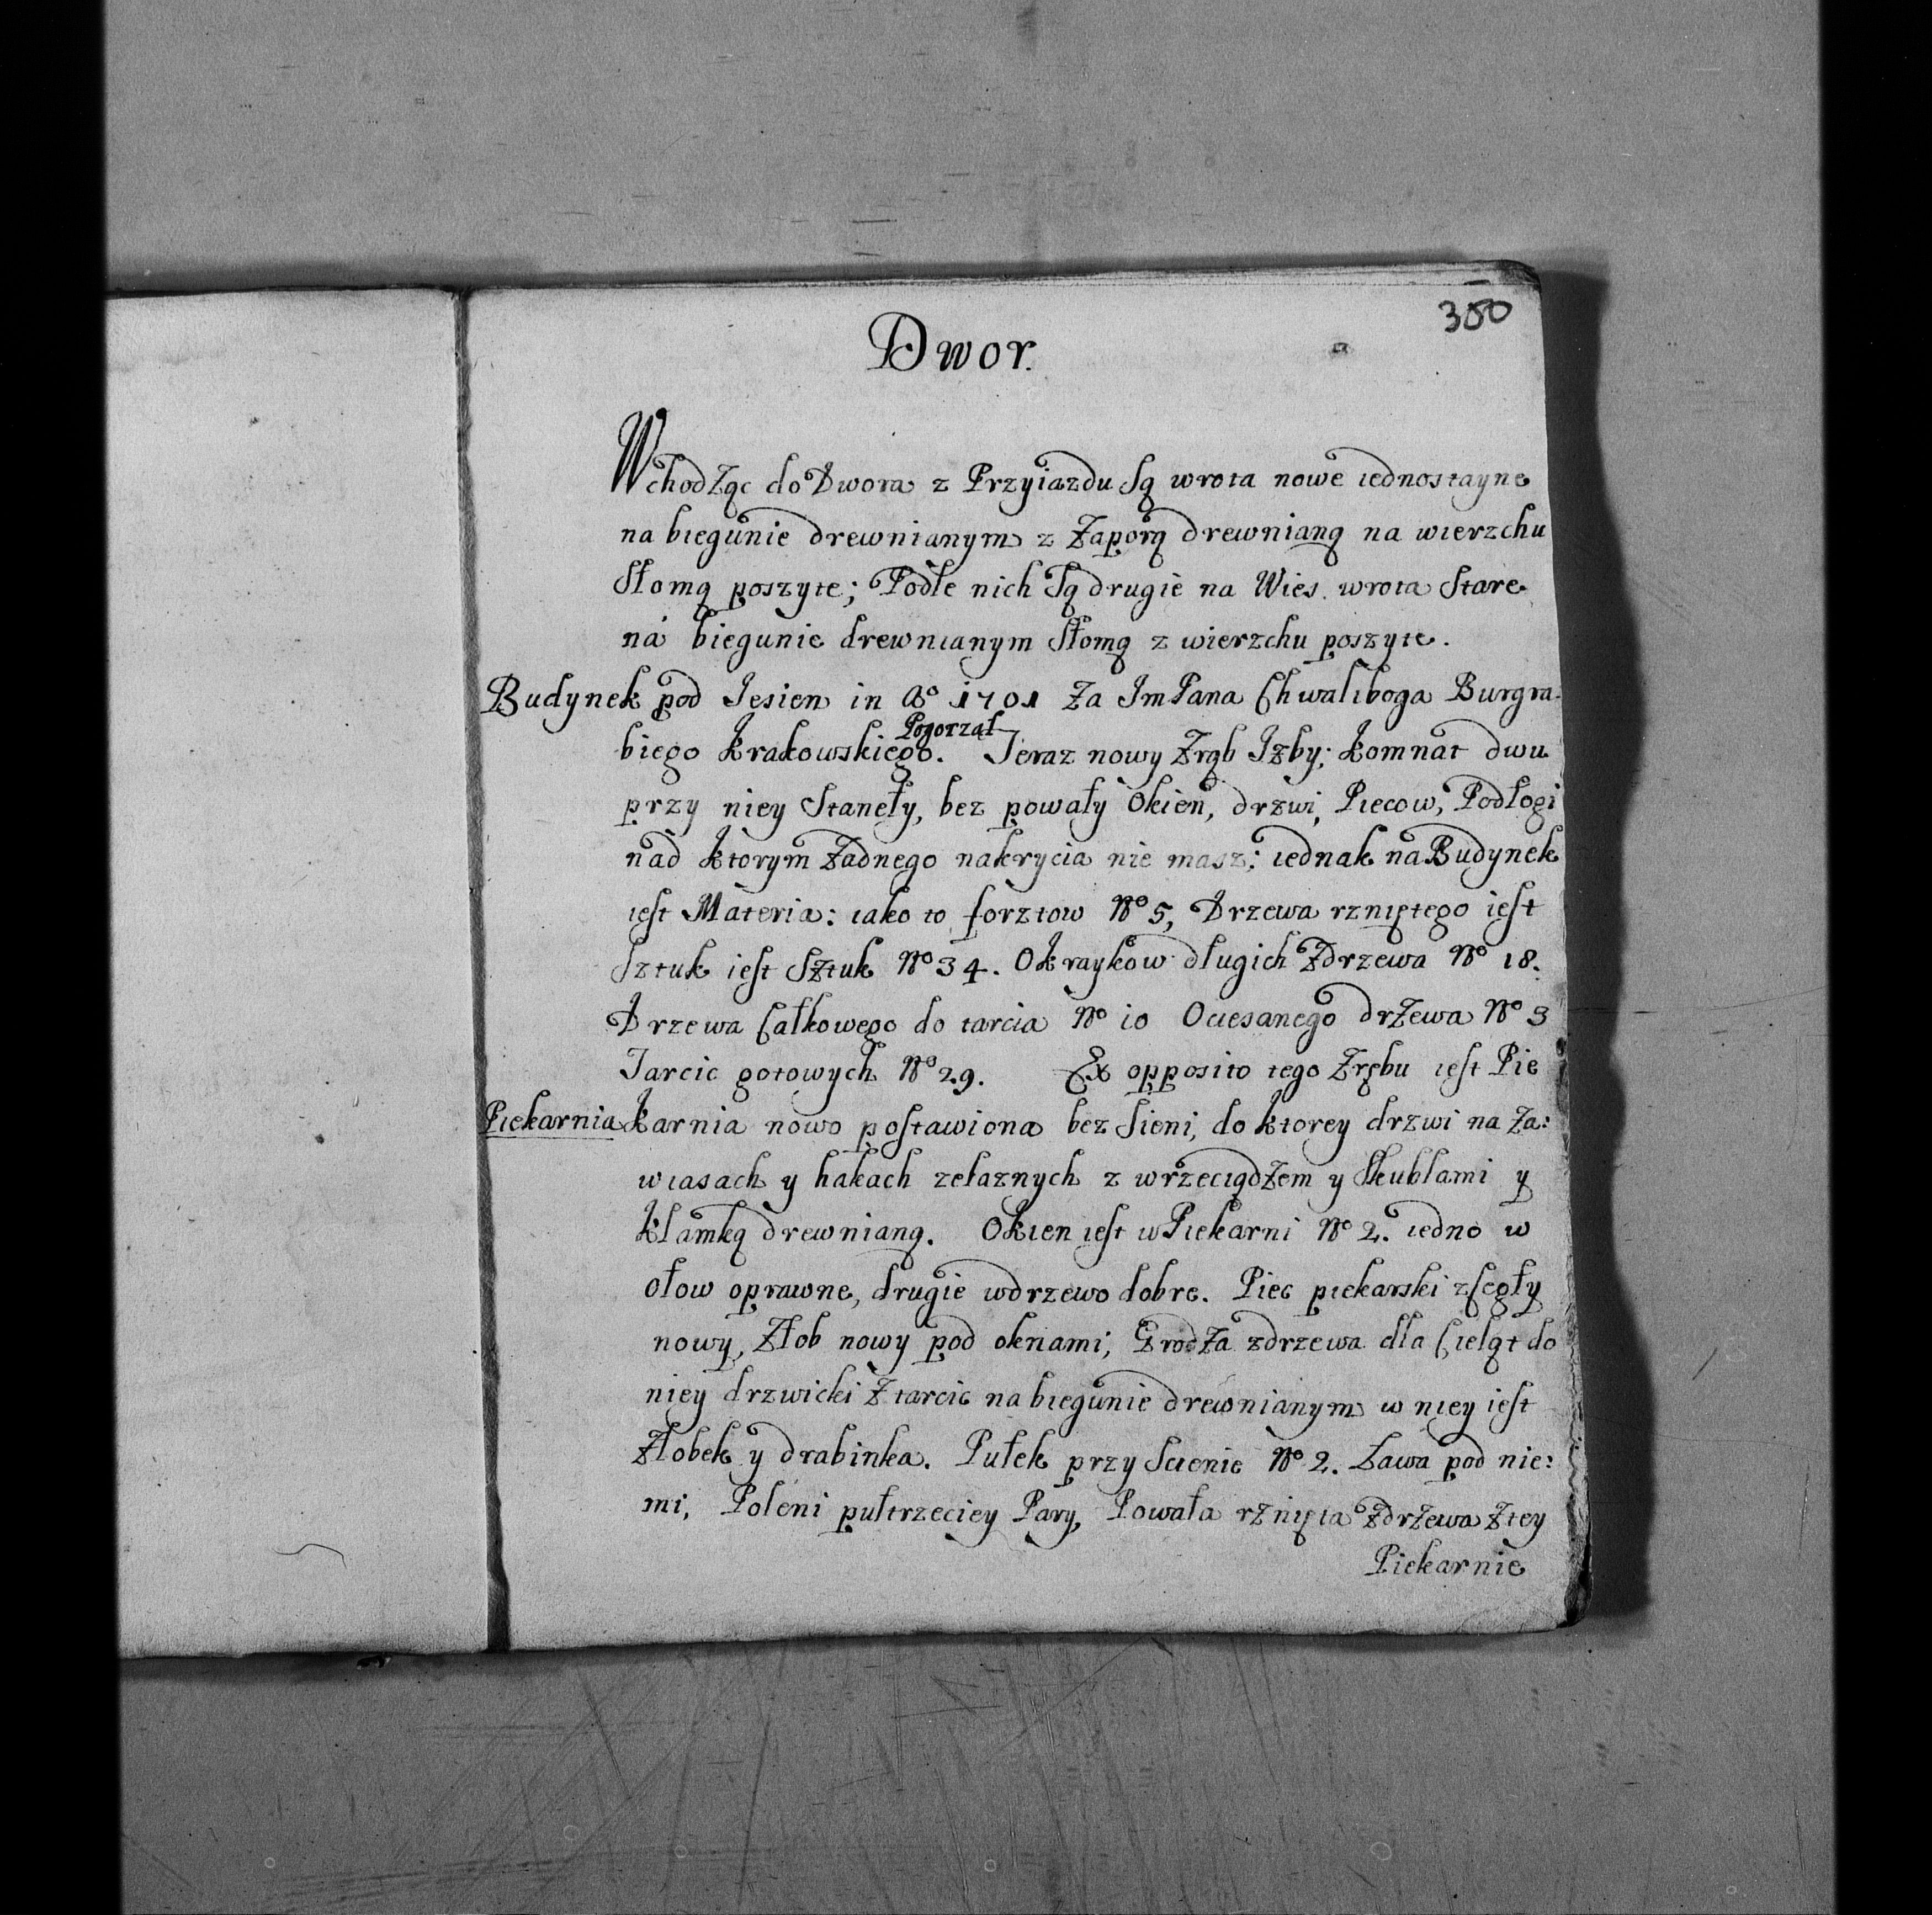 380
Dwor.
Wchodząc do Dwora z Przyiazdu Są wrota nowe iednostayne
na biegunie drewnianym z Zaporą drewnianą na wierzchu
Słomą poszyte; Podle nich Są drugie na Wies. wrota Stare
ná biegunie drewnianym Słomą z wierzchu poszyte.
Budynek pod Iesien in Aº 1701 Za ImPana Chwaliboga Burgra-
Pogorzał
biego Krakowskiego. Teraz nowy Zrąb Izby; Komnat dwu
przy niey Staneły, bez powały Okien, drzwi, Piecow, Podłogi
nad Ktorym Żadnego nakrycia nie masz; iednak na Budynek
iest Materia: iako to forztow Nº 5, Drzewa rzniętego iest
Sztuk iest Sztuk Nº 34. Okraykow długich Zdrzewa Nº 18.
Drzewa Całkowego do tarcia Nº 10 Ociesanego drZewa Nº 3
Tarcic gotowych Nº 29. Ex opposito tego Zrębu iest Pie
Piekarnia Karnia nowo postawiona bez Sieni, do Ktorey drzwi na Za:
wiasach y hakach zelaznych z wrzeciądZem y Skublami y
Klamką drewnianą. Okien iest w Piekarni Nº 2. iedno w
ołow oprawne, drugie wdrzewo dobre. Piec piekarski zCegły
nowy, Złob nowy pod oknami, GrodZa zdrzewa dla Cieląt do
niey drzwicki Z tarcic na biegunie drewnianym w niey iest
Złobek y drabinka. Pułek przy Scienie Nº 2. Ława pod nie:
mi, Poleni pułtrzeciey Pary, Powała rznięta Zdrzewa Z tey
Piekarnie